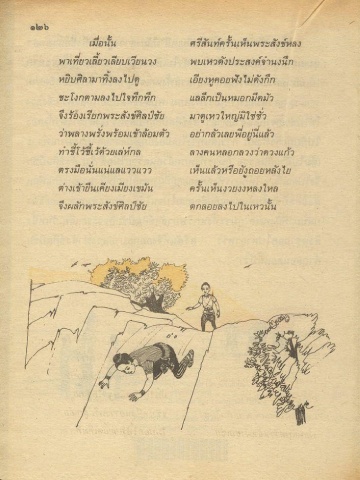 ๑๒๖
เมื่อนั้น ศรีสันท์ครั้นเห็นพระสังข์หลง
พาเที่ยวเลี้ยวเลียบเวียนวง พบเหวดังประสงค์จำนงนึก
หยิบศิลามาทิ้งลงไปดู เอียงหูคอยฟังไม่ดังกึก
ชะโงกตามลงไปใจทึกทึก แลลึกเป็นหมอกมืดมัว
จึงร้องเรียกพระสังข์ศิลป์ชัย มาดูเหวใหญ่มิใช่ชั่ว
ว่าพลางพรั่งพร้อมเข้าล้อมตัว อย่ากลัวเลยพี่อยู่นี่แล้ว
ทำชี้โว้ชี้เว้ด้วยเล่ห์กล ลางคนหลอกลวงว่าดวงแก้ว
ตรงมือนั่นแน่แลแวววาว เห็นแล้วหรือยังถอยหลังไย
ต่างเข้ายืนเคียงเมียงเขม้น ครั้นเห็นงวยงงหลงใหล
จึงผลักพระสังข์ศิลป์ชัย ตกลอยลงไปในเหวนั้น